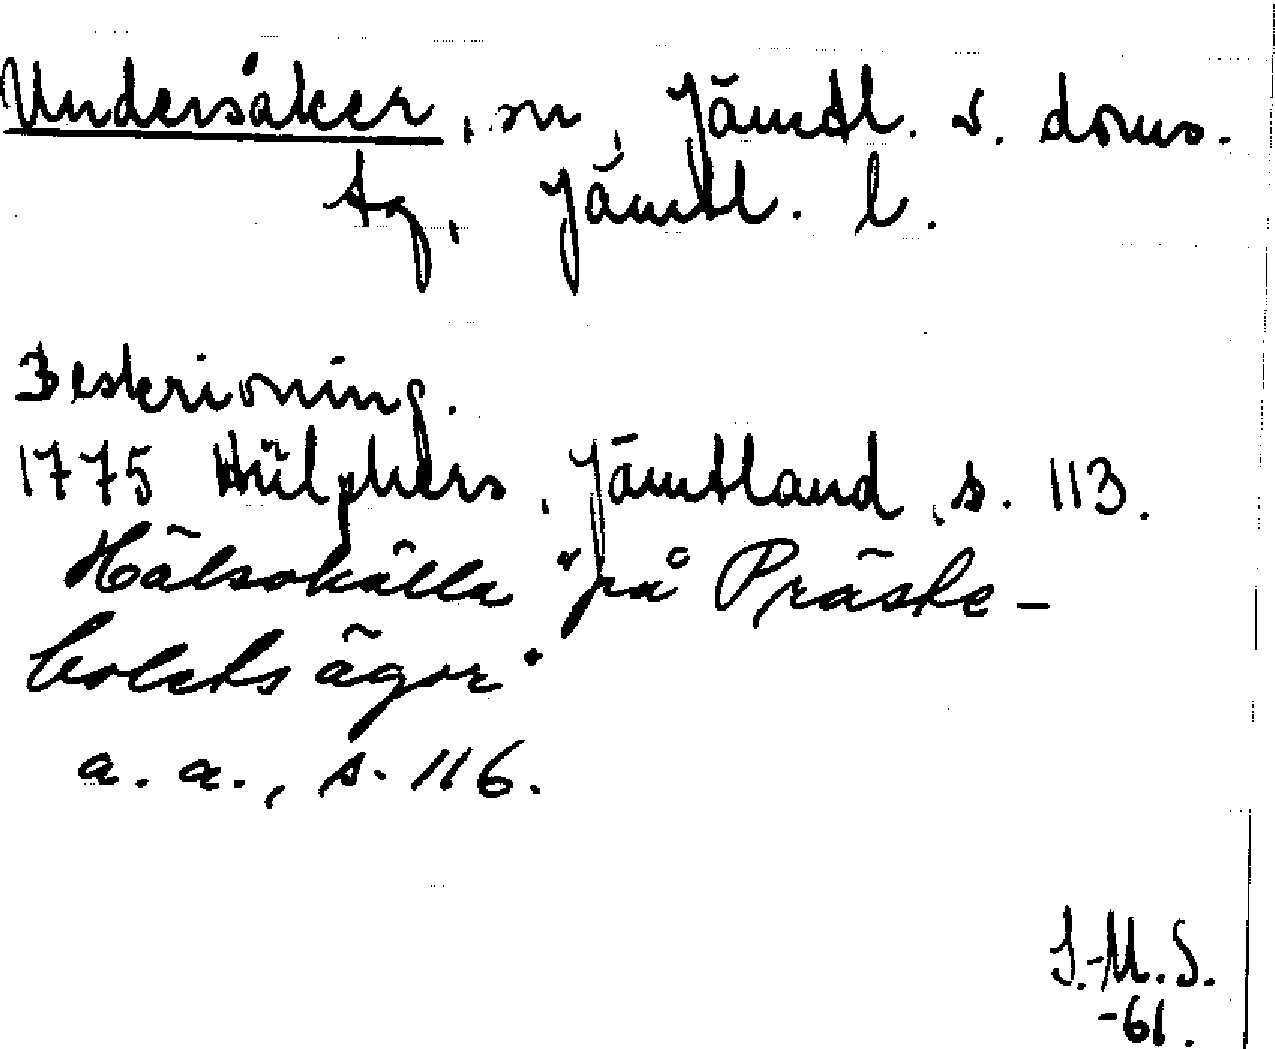 Undersåker, sn, Jämtl. v. doms.
tg, Jämtl. l.
Beskrivning.
1775 Hülphers, Jämtland, s. 113.
Hälsokälla "på Präste-
bolets ägor"
a. a., s. 116.
I.-M. S.
-61.